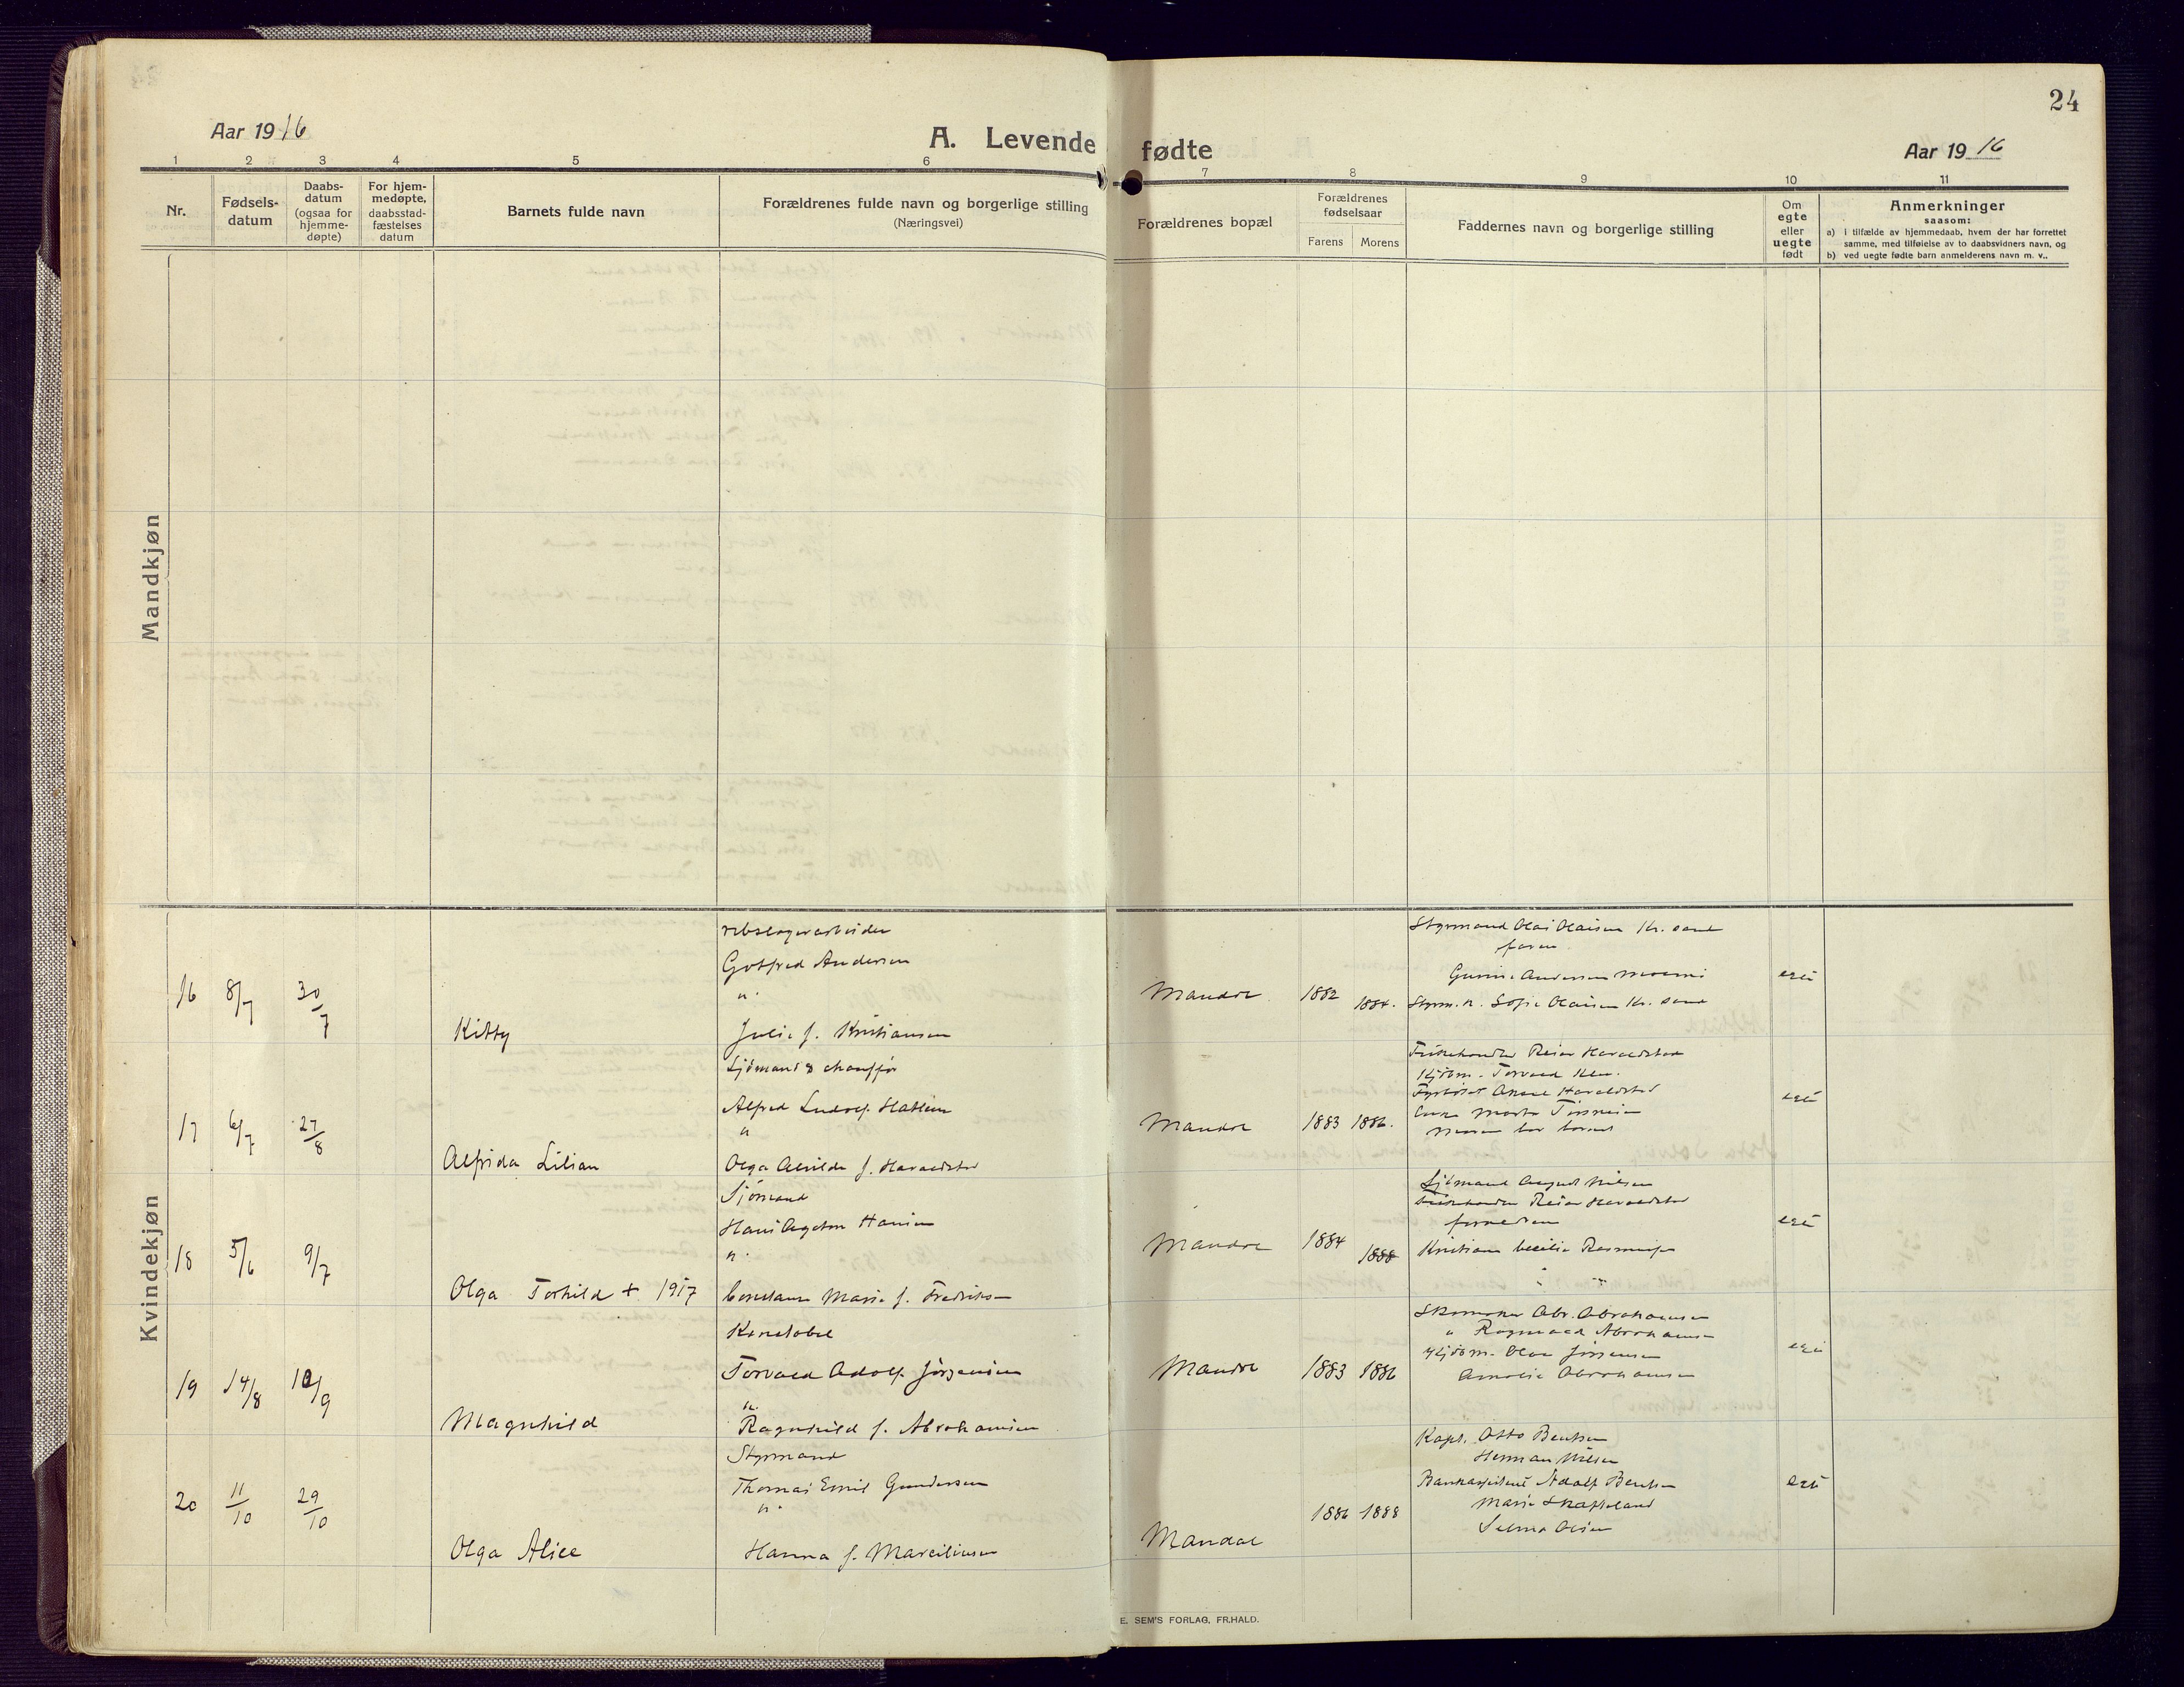 24
Aar 1916
A. Levende fødte
Aar 1916
1 2 3 4 5 6 7 8 9 10 11
Nr.
Fødsels-
datum
Daabs-
datum
(ogsaa for
hjemme-
døpte)
For hjem-
medøpte,
daabsstad-
fæstelses
datum
Barnets fulde navn
Forældrenes fulde navn og borgerlige stilling
(Næringsvei)
Forældrenes bopæl
Forældrenes
fødselsaar
Farens Morens
Faddernes navn og borgerlige stilling
Om
egte
eller
uegte
født
Anmerkninger
saasom:
a) i tilfælde av hjemmedaab, hvem der har forrettet
samme, med tilføielse av to daabsvidners navn, og
b) ved uegte fødte barn anmelderens navn m. v..
Mandkjøn
Kvindekjøn
16 8/7 30/7
Kitty
Gotfred Andersen
"
Julie f. Kristiansen
Mandal 1882 1884.
Styrmand Olai Olaisen Kr. sand
faren
Andersen
Styrm. k. Sofie Olaisen Kr. sand
egte
17 6/7 27/8
Alfrida Lilian
Sjömand & chauffør
Alfred Ludolf
"
Olga f. Haraldstad
Mandal 1883 1886.
Reier Haraldstad
Kjöbm. Torvald
Haraldstad
Marta
moren bar barnet
egte
18 5/6 9/7
Olga Torhild + 1917
Sjömand
Hans Hansen
"
Marie f.
Mandal 1884 1888
Sjömand August Nilsen
Reier Haraldstad
Cecilie
egte
19 14/8 10/9
Magnhild
Konstabel
Torvald Adolf Jörgensen
"
Ragnhild f. Abrahamsen
Mandal 1883 1886
Skomaker Abr. Abrahamsen
" Abrahamsen
Kjöbm. Olaf Jörgensen
Amalie Abrahamsen
egte
20 11/10 29/10
Olga Alice
Styrmand
Thomas Emil Gundersen
"
Hanna f. Marciliusen
Mandal
1886 1888
Kapt. Otto Bentsen
Herman Nilsen
Bankassistent Adolf Bentsen
Marie Skatteland
Selma Olsen
egte
E. SEM'S FORLAG, FR.HALD.